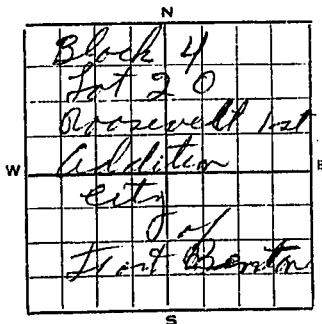 N
Block 4
Lot 20
Roosevelt 1st
Addition
W E
City
of
Fort Benton
S